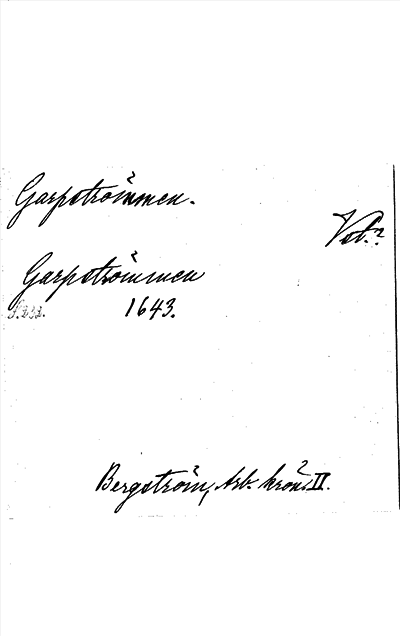 Garpströmmen.
Vst.?
Garpströmmen
S. 232. 1643.
Bergström, Arb. krön. II.